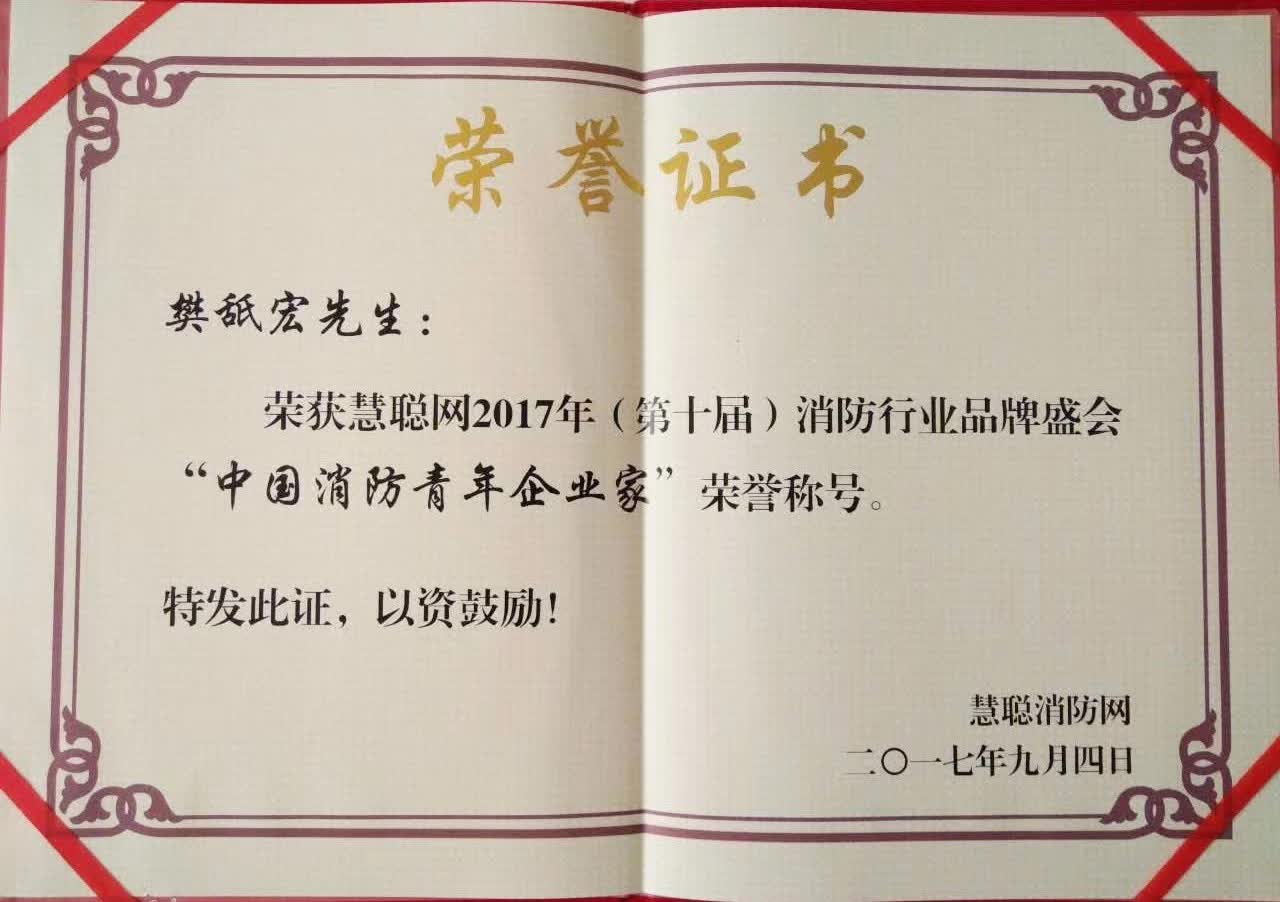 荣誉证书
樊舐宏先生：
荣获慧聪网2017年（第十届）消防行业品牌盛会
“中国消防青年企业家”荣誉称号。
特发此证，以资鼓励！
慧聪消防网
二〇一七年九月四日